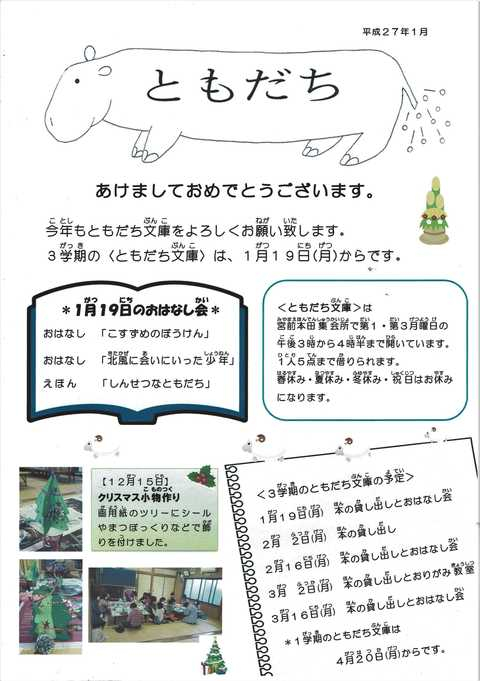 平成27年1月
ともだち
あけましておめでとうございます。
今年もともだち文庫をよろしくお願い致します。
3学期の〈ともだち文庫〉は、1月19日(月)からです。
＊1月19日のおはなし会＊
おはなし 「こすずめのぼうけん」
おはなし 「北風に会いにいった少年」
えほん 「しんせつなともだち」
＜ともだち文庫＞は
宮前本田集会所で第1・第3月曜日の
午後3時から4時半まで開いています。
1人5点まで借りられます。
春休み・夏休み・冬休み・祝日はお休み
になります。
【12月15日】
クリスマス小物作り
画用紙のツリーにシール
やまつぼっくりなどで飾
りを付けました。
＜3学期のともだち文庫の予定＞
1月19日(月) 本の貸し出しとおはなし会
2月 2日(月) 本の貸し出し
2月16日(月) 本の貸し出しとおはなし会
3月 2日(月) 本の貸し出しとおりがみ教室
3月16日(月) 本の貸し出しとおはなし会
＊1学期のともだち文庫は
4月20日(月)からです。